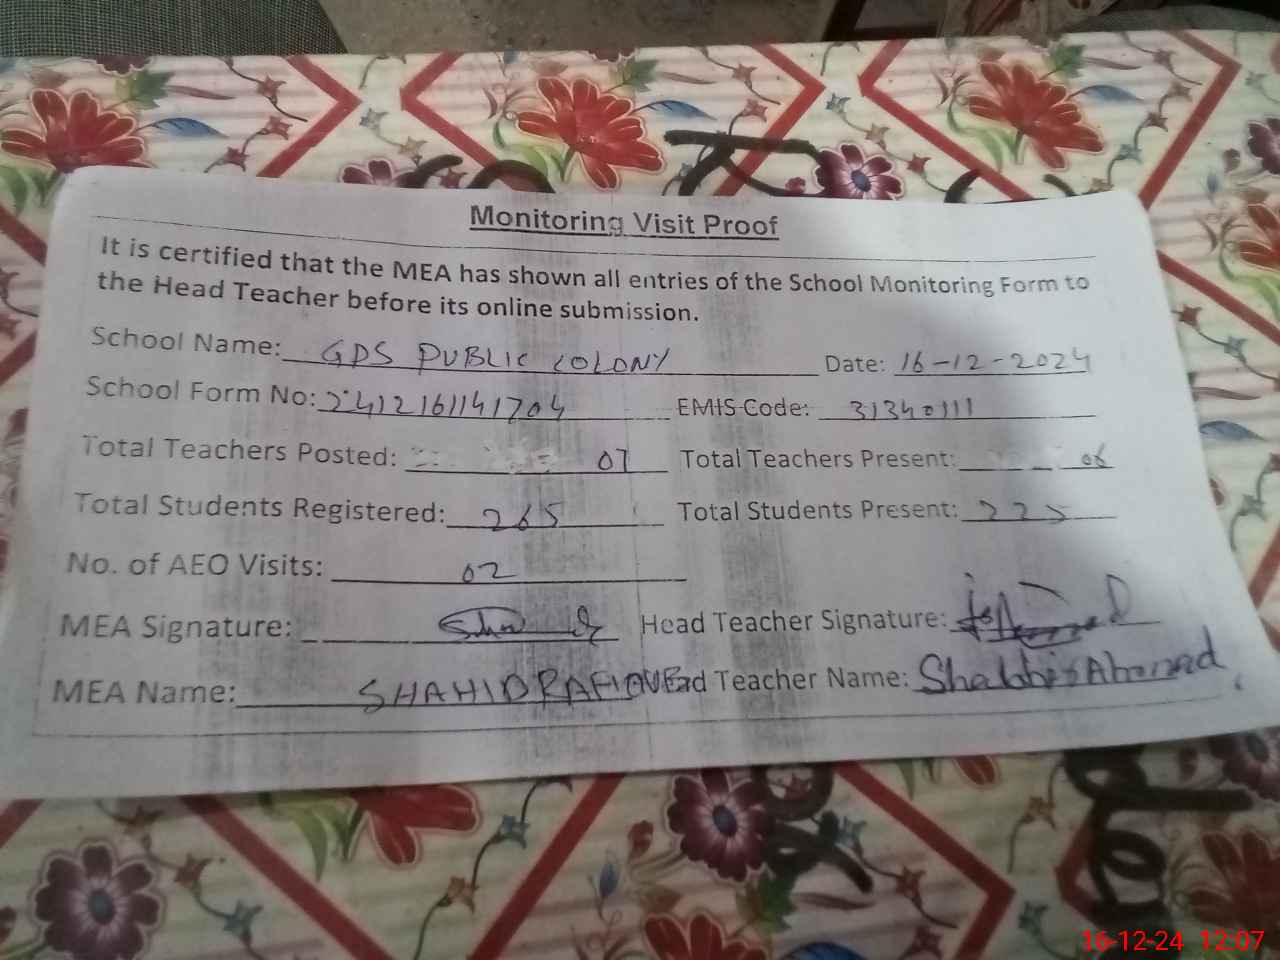 Monitoring Visit Proof
It is certified that the MEA has shown all entries of the School Monitoring Form to
the Head Teacher before its online submission.
School Name: GPS PUBLIC COLONY Date: 16-12-2024
School Form No: 2412161141704 EMIS Code: 31340111
Total Teachers Posted: 07 Total Teachers Present: 06
Total Students Registered: 265 Total Students Present: 225
No. of AEO Visits: 02
MEA Signature: Head Teacher Signature:
MEA Name: SHAHID RAFIQUE ad Teacher Name: Shabbir Ahmad
16-12-24 12:07